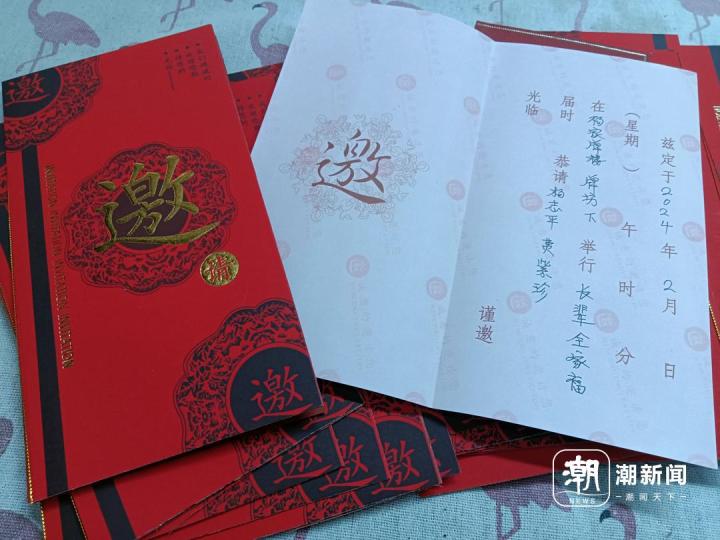 邀
邀
请
INVITATION
邀
邀
邀
邀
邀
兹定于2024年2月 日
(星期 ) 午 时 分
在杨家牌楼牌坊下举行长辈全家福
届时 恭请杨志平 黄紫珍
光临
谨邀
潮
NEWS
潮新闻
潮闻天下